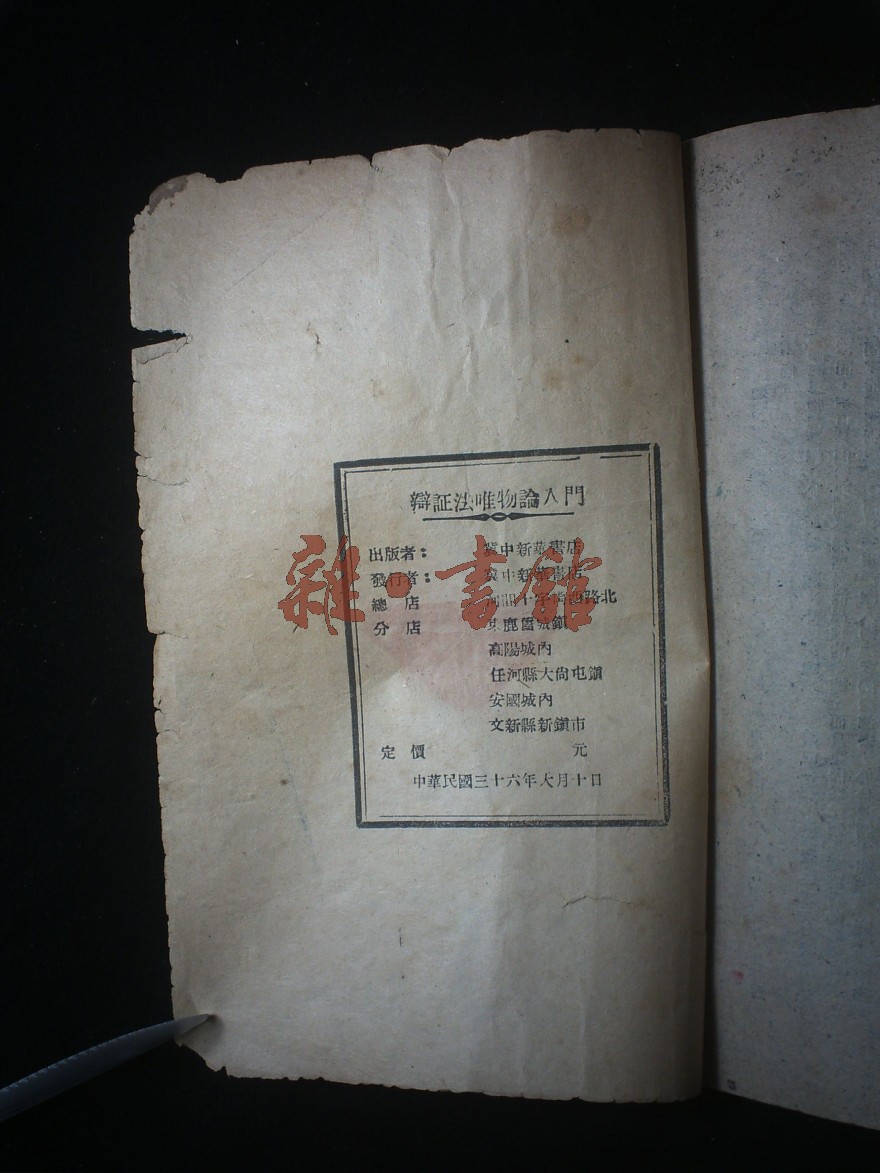 辯証法唯物論入門
出版者： 冀中新華書店
發行者： 冀中新華書店
總店 河間十字街西路北
分店 束鹿舊城鎭
高陽城內
任河縣大尙屯鎭
安國城內
文新縣新鎭市
定價 元
中華民國三十六年大月十日
雜·書館